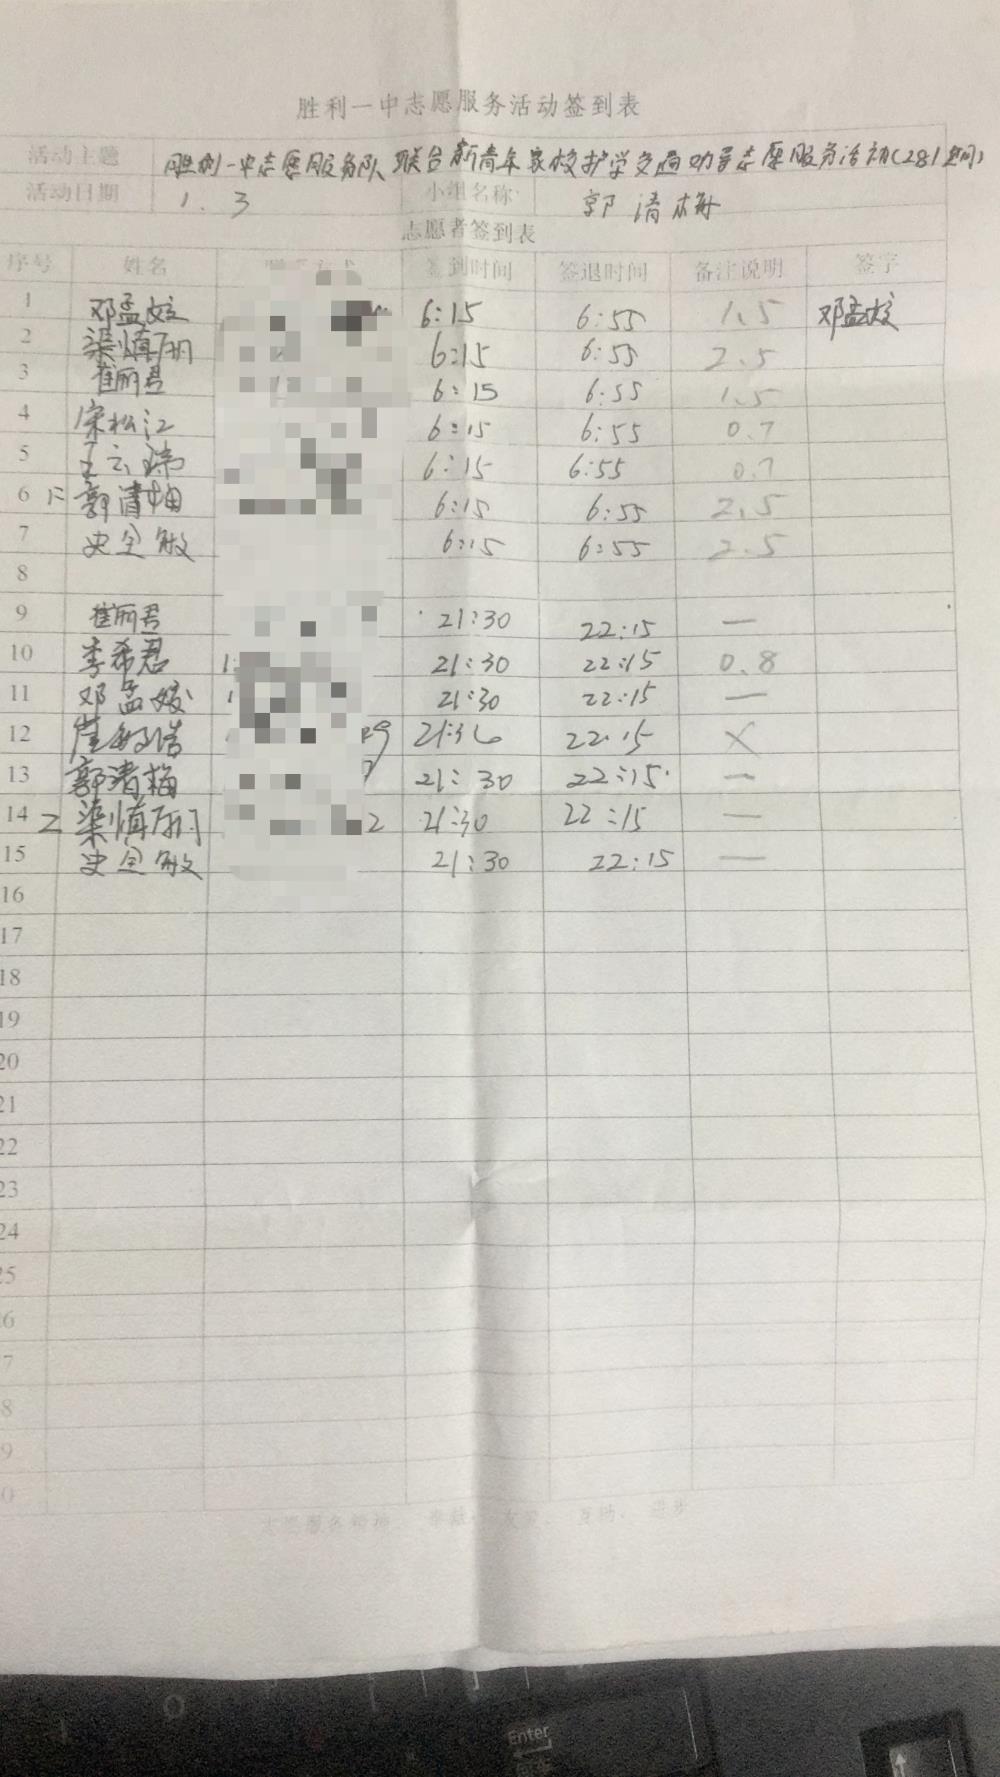 胜利一中志愿服务活动签到表
活动主题 胜利一中志愿服务队联合新青年家校护学交通劝导志愿服务活动(281期)
活动日期 1.3 小组名称 郭清梅
志愿者签到表
序号 姓名 签到时间 签退时间 备注说明 签字
1 邓孟姣 6:15 6:55 1.5 邓孟姣
2 渠慎丽 6:15 6:55 2.5
3 崔丽君 6:15 6:55 1.5
4 宋松江 6:15 6:55 0.7
5 王云 6:15 6:55 0.7
6 郭清梅 6:15 6:55 2.5
7 史全敏 6:15 6:55 2.5
8
9 崔丽君 21:30 22:15 —
10 李希君 21:30 22:15 0.8
11 邓孟姣 21:30 22:15 —
12 浩 21:36 22:15 X
13 郭清梅 21:30 22:15 —
14 渠慎丽 2 21:30 22:15 —
15 史全敏 21:30 22:15 —
16
17
18
19
20
21
22
23
24
25
6
7
8
9
0
志愿服务精神: 奉献、友爱、互助、进步
Enter